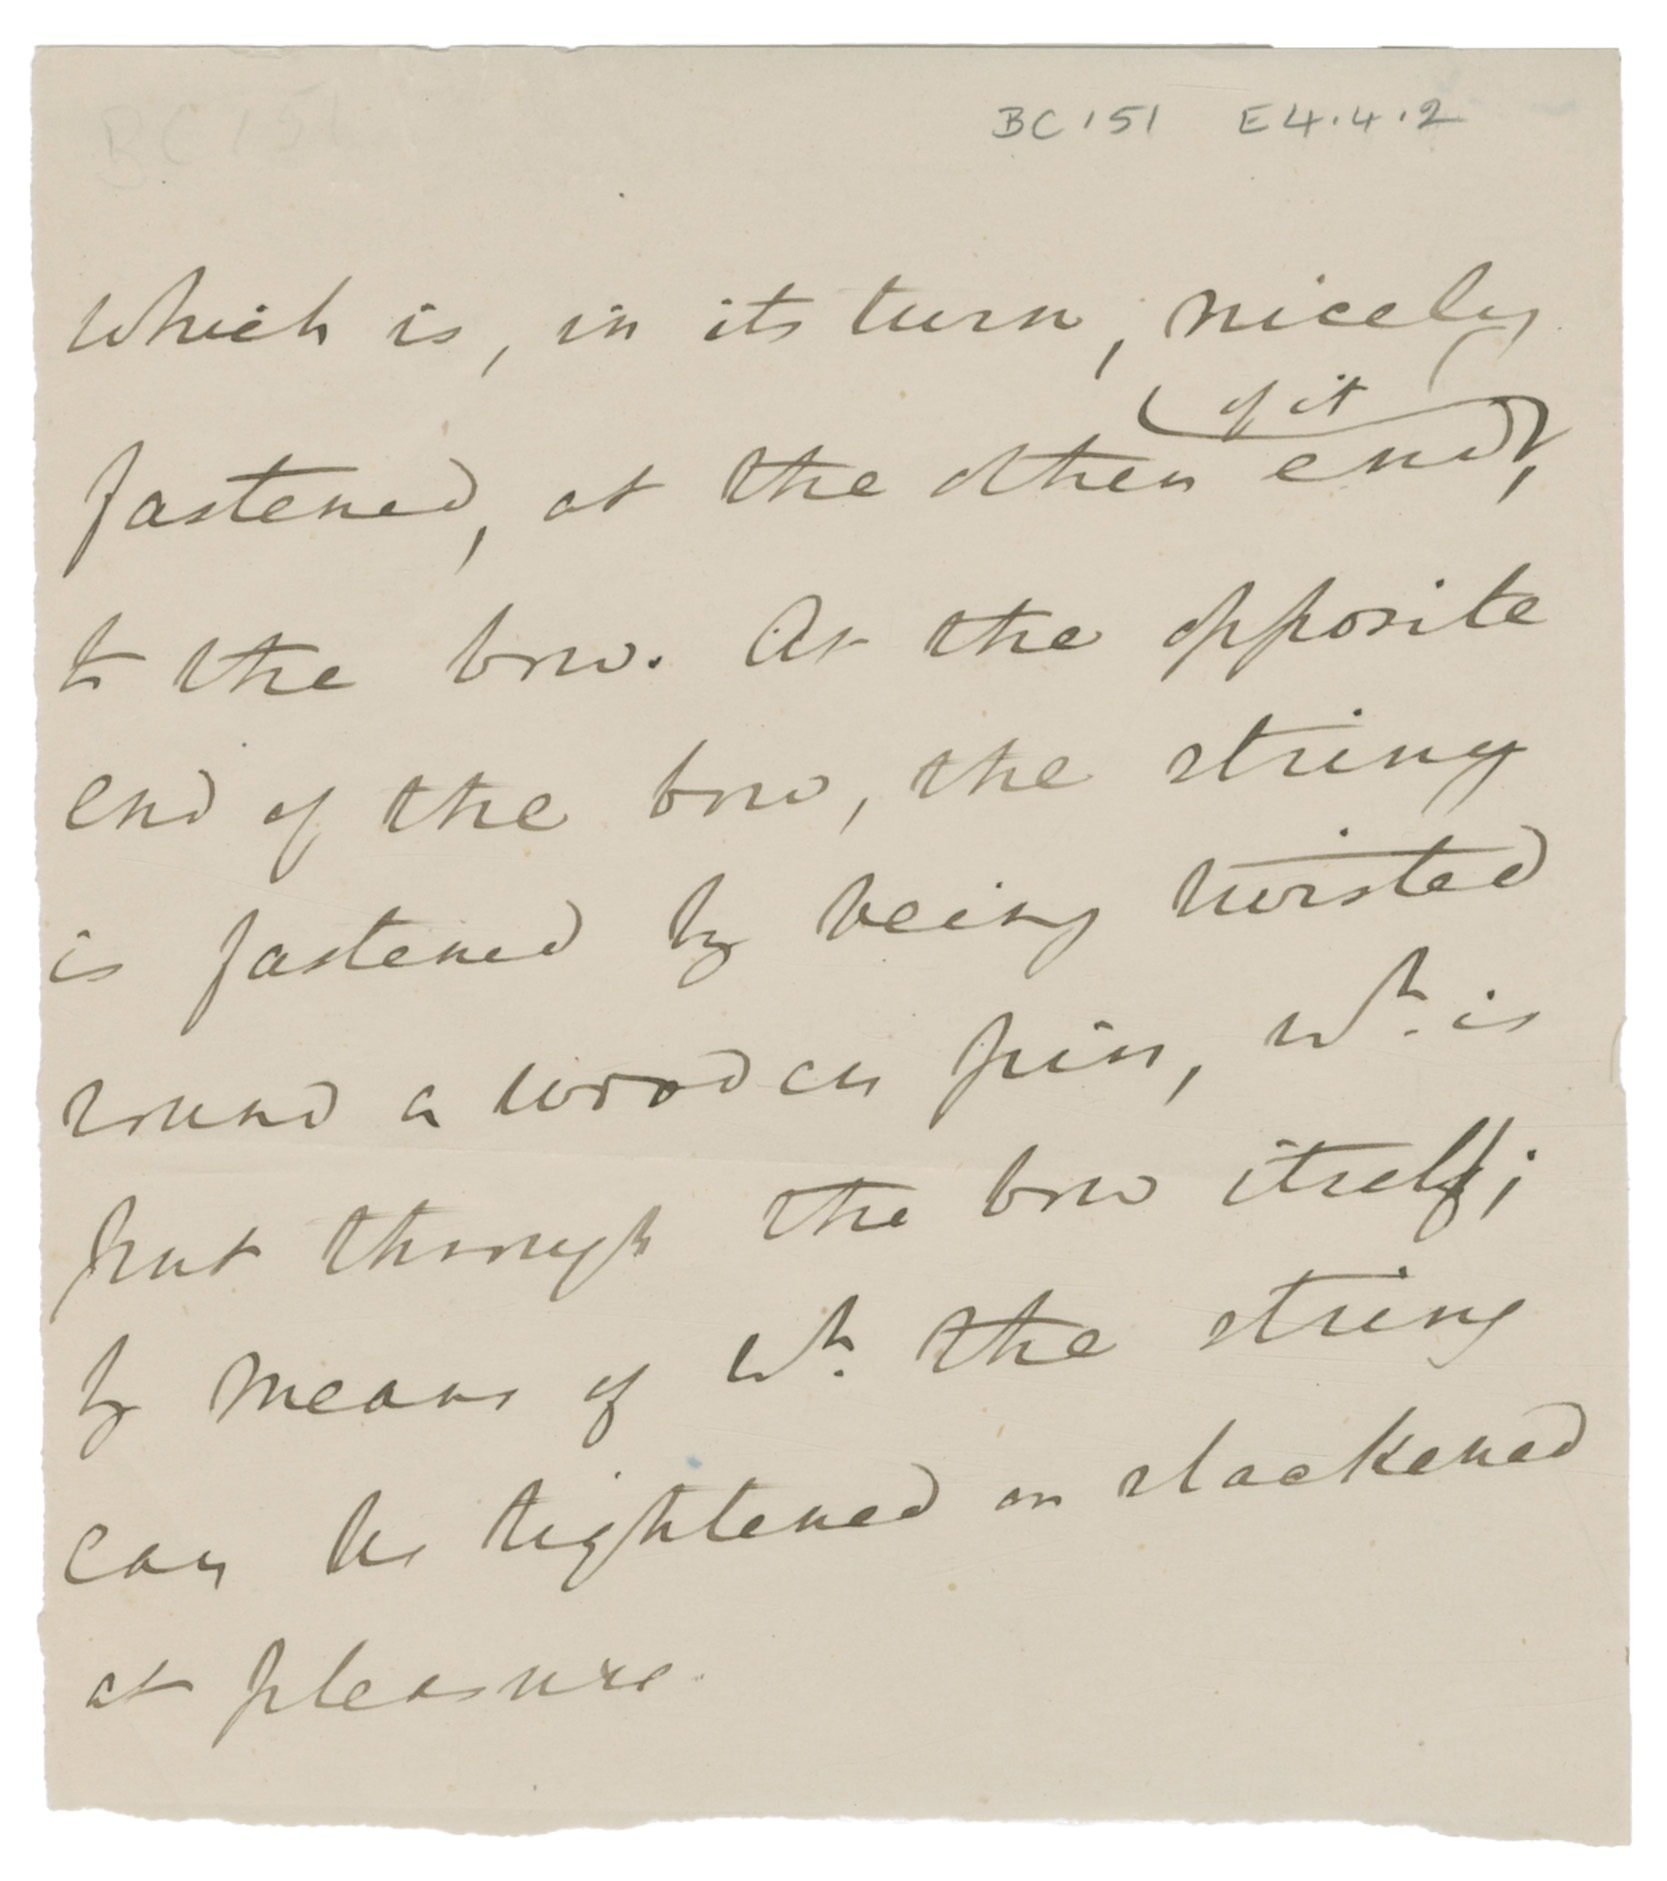 BC 151 E4.4.2
BC 151
which is, in its turn, nicely
of it
fastened, at the other end,
to the bow. At the opposite
end of the bow, the string
is fastened by being twisted
round a wooden pin, wh. is
put through the bow itself;
by means of wh. the string
can be tightened or slackened
at pleasure.